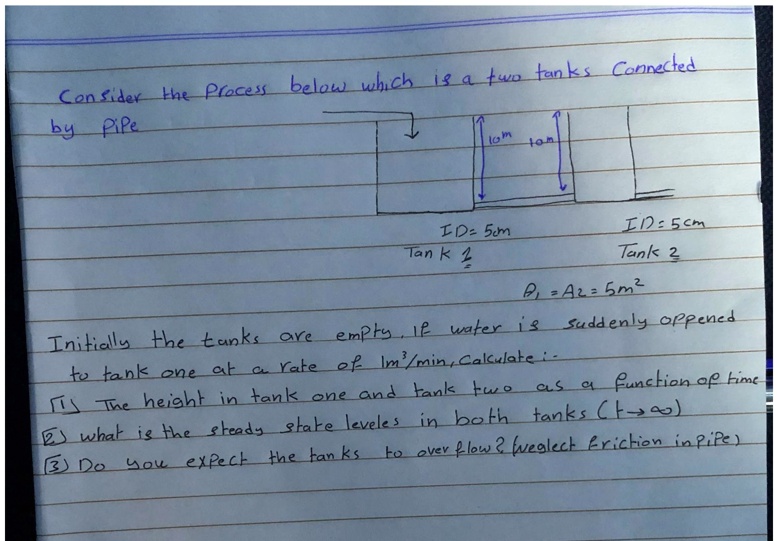 Consider the Process below which is a two tanks Connected
by PiPe
10m 10m
ID= 5cm ID= 5cm
Tank 1 Tank 2
A1 = A2 = 5m²
Initially the tanks are empty. If water is suddenly oppened
to tank one at a rate of 1m³/min, Calculate :-
[1] The height in tank one and tank two as a function of time
[2] what is the steady state leveles in both tanks (t→∞)
[3] Do you expect the tanks to over flow? (neglect friction in pipe)